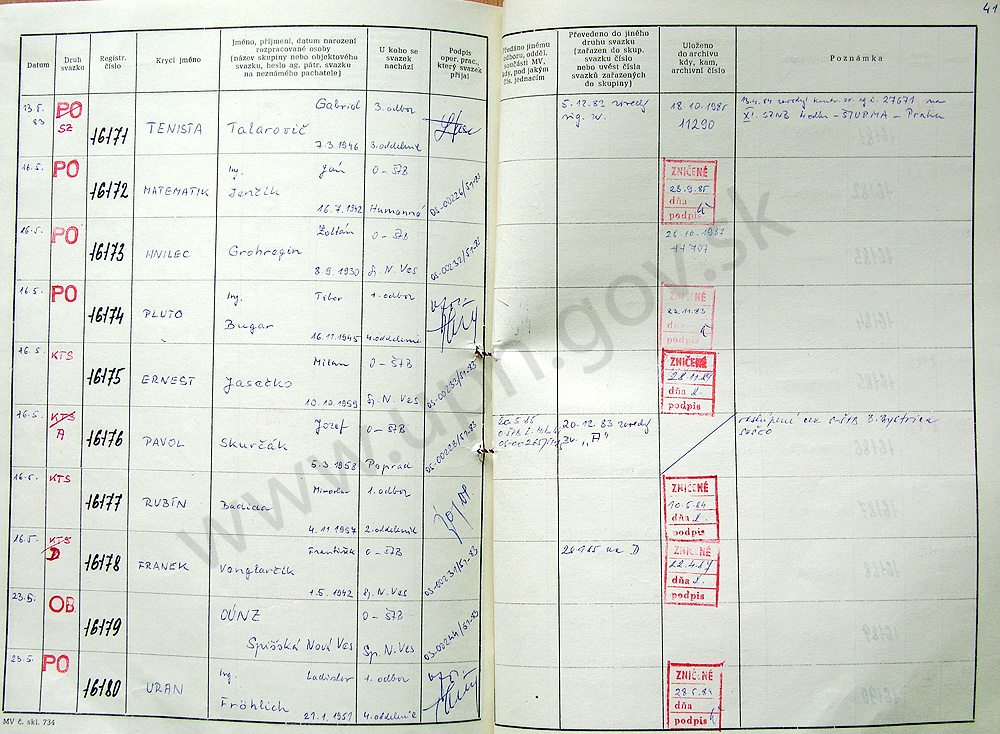 41
Datum
Druh svazku
Registr. číslo
Krycí jméno
Jméno, příjmení, datum narození
rozpracované osoby
(název skupiny nebo objektového
svazku, heslo ag. pátr. svazku
na neznámého pachatele)
U koho se
svazek
nachází
Podpis
oper. prac.,
který svazek
přijal
Předáno jinému
odboru, odděl.
součásti MV,
kdy, pod jakým
čís. jednacím
Převedeno do jiného
druhu svazku
(zařazen do skup.
svazku číslo
nebo uvést čísla
svazků zařazených
do skupiny)
Uloženo
do archivu
kdy, kam,
archivní číslo
Poznámka
13.5. 83 PO SZ 16171 TENISTA Gabriel Talarovič 7.3.1946 3. odbor 3. oddelenie
5.12.83 18.10.1985 11290
XI. SZNB 4. odbor - ŠTUPMA - Praha
16.5. PO 16172 MATEMATIK Ing. Ján Jenčík 16.7.1942 O-ŠTB Humenné 05-00226/51-83
ZNIČENÉ 23.9.85 dňa podpis
16.5. PO 16173 HNILEC Zoltán Grohregin 8.9.1930 O-ŠTB Sp. N. Ves 05-00232/51-83
26.10.1987
16.5. PO 16174 PLUTO Ing. Tibor Bugar 16.11.1945 1. odbor 4. oddelenie
ZNIČENÉ 23.11.83 dňa podpis
16.5. KTS 16175 ERNEST Milan Jasečko 10.10.1959 O-ŠTB Sp. N. Ves 05-00233/51-83
ZNIČENÉ 28.11.84 dňa podpis
16.5. KTS A 16176 PAVOL Jozef Skurčák 5.3.1958 O-ŠTB Poprad 05-00223/51-83
20.5.85
20.12.83 zv. "A"
B. Bystrica
16.5. KTS 16177 RUBÍN Miroslav Badida 4.11.1957 1. odbor 2. oddelenie
ZNIČENÉ 10.5.84 dňa podpis
16.5. KTS D 16178 FRANEK František Vonglarčík 1.5.1942 O-ŠTB Sp. N. Ves 05-00231/51-83
na D
ZNIČENÉ 22.4.87 dňa podpis
23.5. OB 16179 OÚNZ Spišská Nová Ves O-ŠTB Sp. N. Ves 05-00244/51-83
23.5. PO 16180 URAN Ing. Ladislav Fröhlich 21.1.1951 1. odbor 4. oddelenie
ZNIČENÉ 28.5.84 dňa podpis
MV č. skl. 734
www.upn.gov.sk